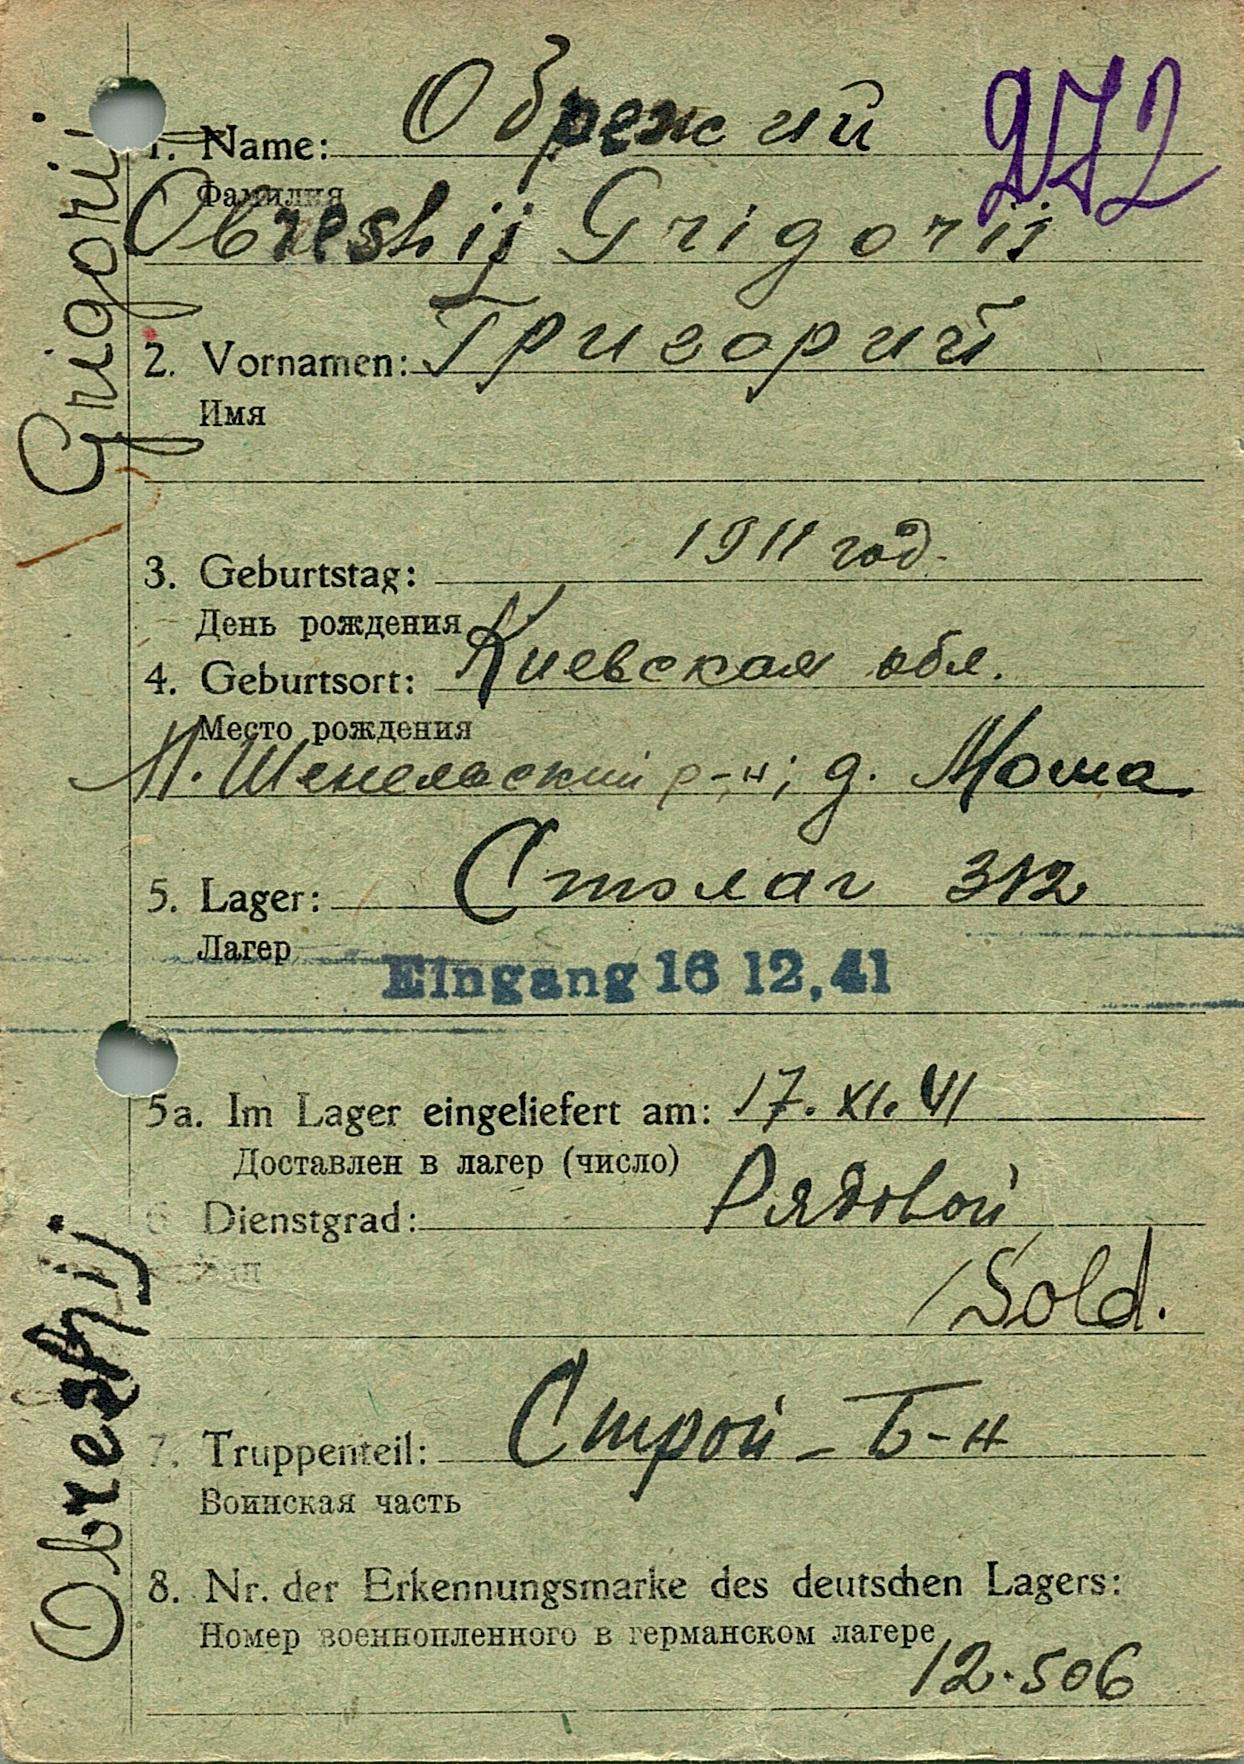 Обрежий
272
1. Name:
Фамилия
Obreshij Grigorij
2. Vornamen: Григорий
Имя
3. Geburtstag: 1911 год.
День рождения
4. Geburtsort: Киевская обл.
Место рождения
р-н; д. Моша
5. Lager: Столаг 312
Лагер
Eingang 16 12.41
5a. Im Lager eingeliefert am: 17. XI. 41
Доставлен в лагер (число)
6 Dienstgrad: Рядовой
/Sold.
7. Truppenteil: Строй-Б-н
Воинская часть
8. Nr. der Erkennungsmarke des deutschen Lagers:
Номер военнопленного в германском лагере
12.506
Grigorij
Obreshij